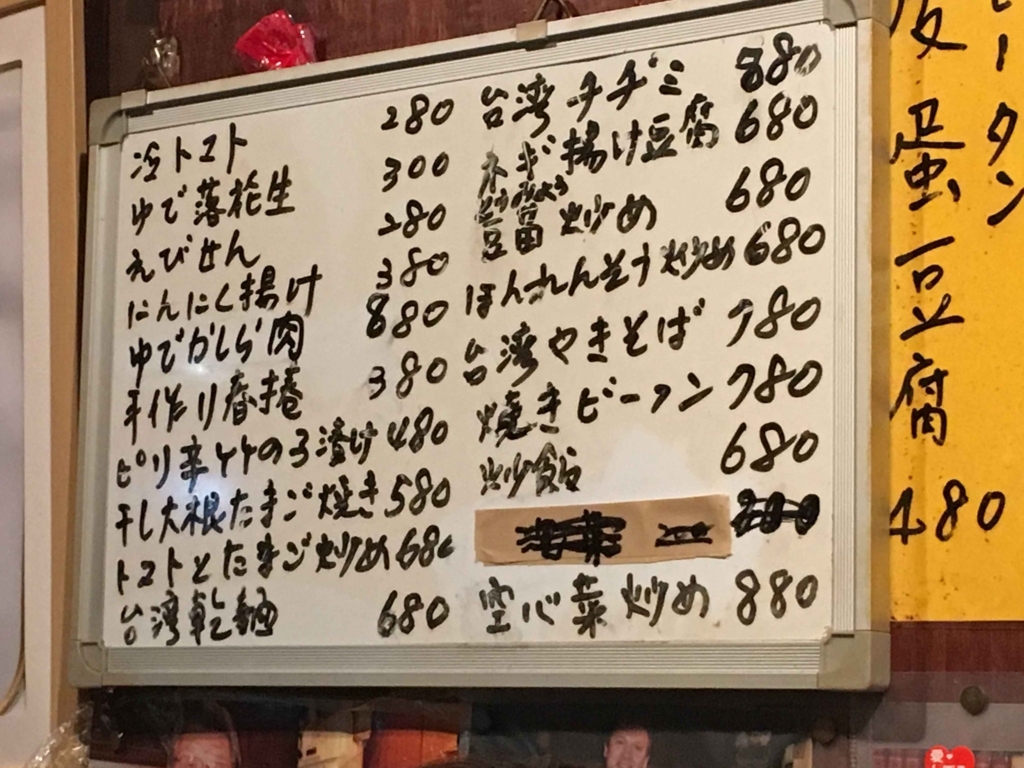 冷トマト 280
ゆで落花生 300
えびせん 280
にんにく揚げ 380
ゆでかしら肉 880
手作り春捲 380
ピリ辛竹の子漬け 480
干し大根たまご焼き 580
トマトとたまご炒め 680
台湾乾麺 680
台湾チヂミ 880
ネギ揚げ豆腐 680
豆苗炒め 680
ほんれんそう炒め 680
台湾やきそば 780
焼きビーフン 780
炒飯 680
空心菜炒め 880
ータン
皮蛋豆腐
480